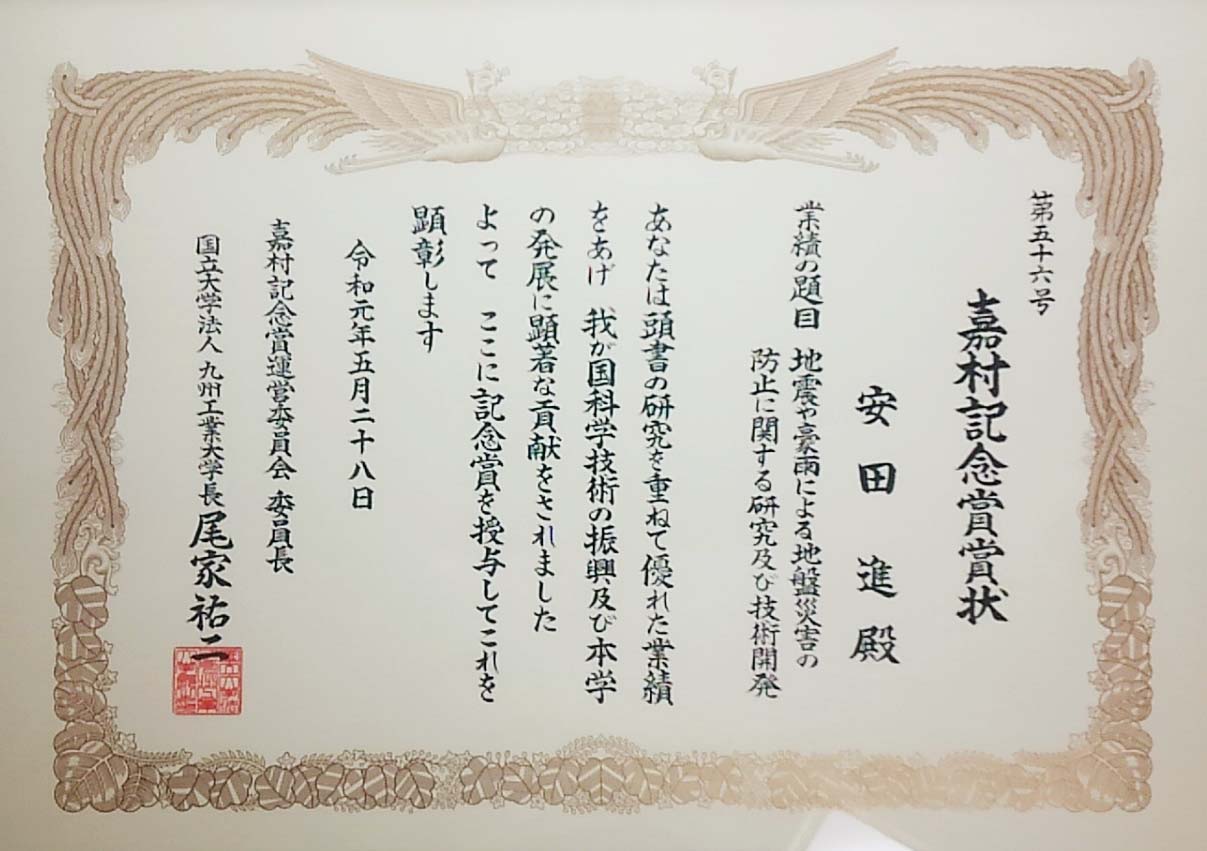 第五十六号
嘉村記念賞賞状
安田進殿
業績の題目 地震や豪雨による地盤災害の
防止に関する研究及び技術開発
あなたは頭書の研究を重ねて優れた業績
をあげ 我が国科学技術の振興及び本学
の発展に顕著な貢献をされました
よって ここに記念賞を授与してこれを
顕彰します
令和元年五月二十八日
嘉村記念賞運営委員会 委員長
国立大学法人 九州工業大学長 尾家祐二